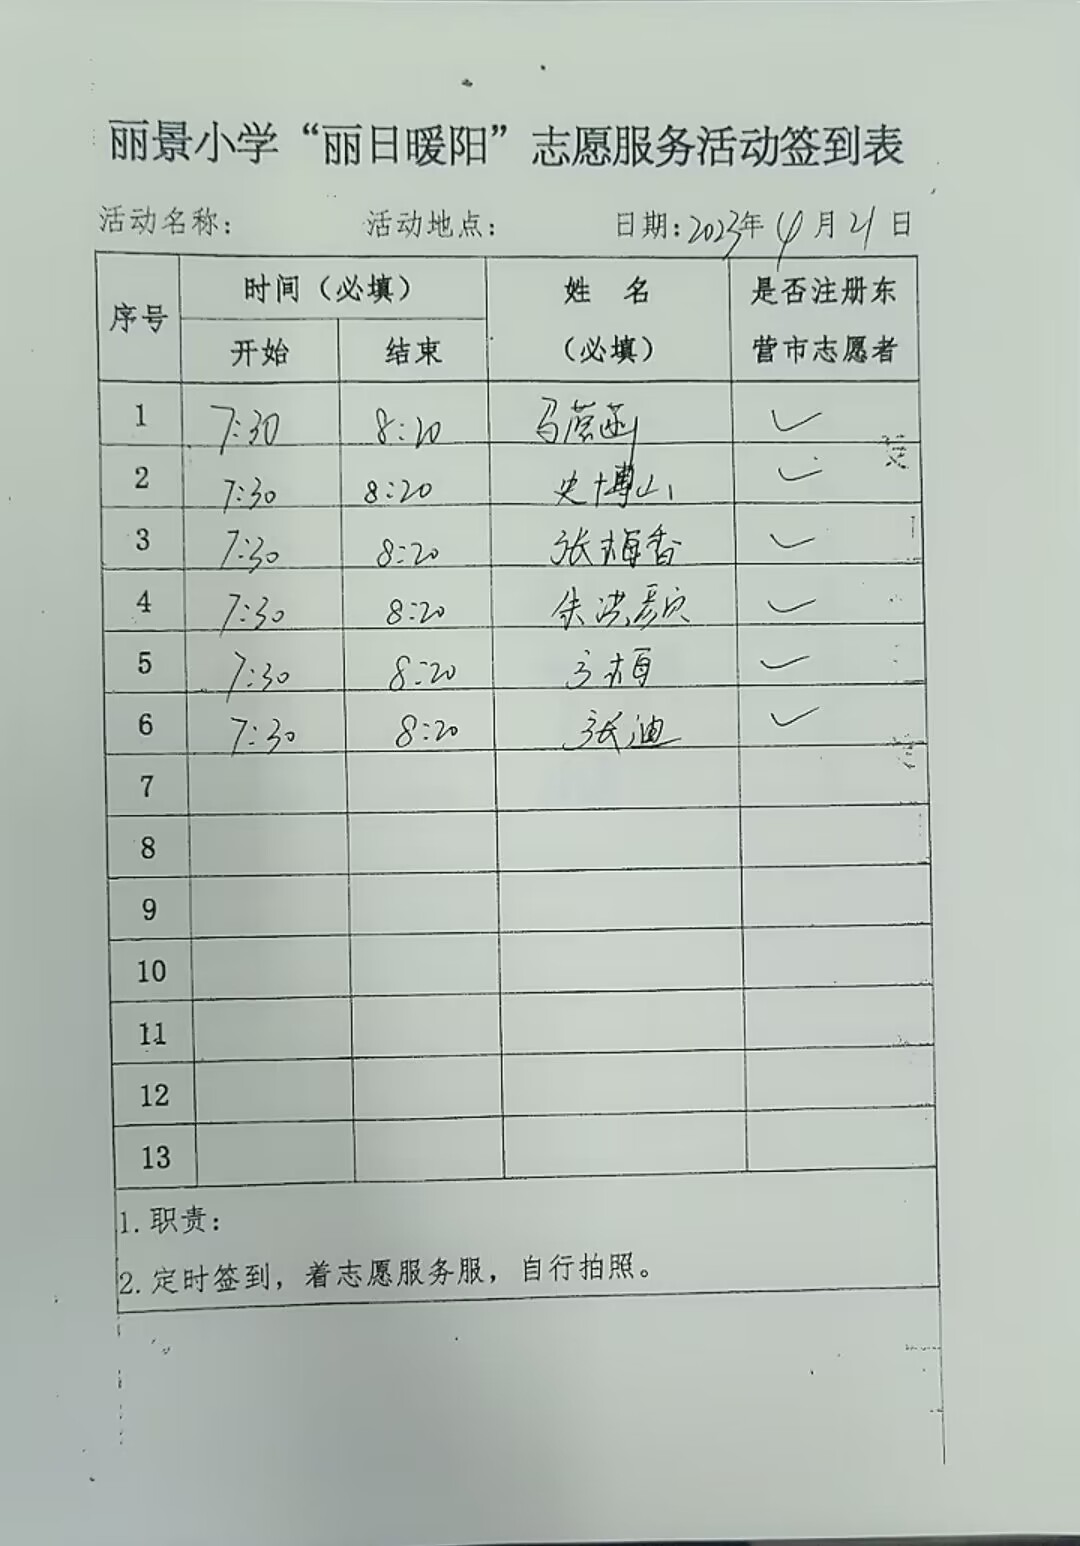 丽景小学“丽日暖阳”志愿服务活动签到表
活动名称: 活动地点: 日期:2023年4月21日
序号 时间（必填） 姓 名（必填） 是否注册东营市志愿者
开始 结束
1 7:30 8:20 马蓉函 ✓
2 7:30 8:20 史博山 ✓
3 7:30 8:20 张梅香 ✓
4 7:30 8:20 朱洪颜 ✓
5 7:30 8:20 方梅 ✓
6 7:30 8:20 张迪 ✓
7
8
9
10
11
12
13
1.职责:
2.定时签到，着志愿服务服，自行拍照。